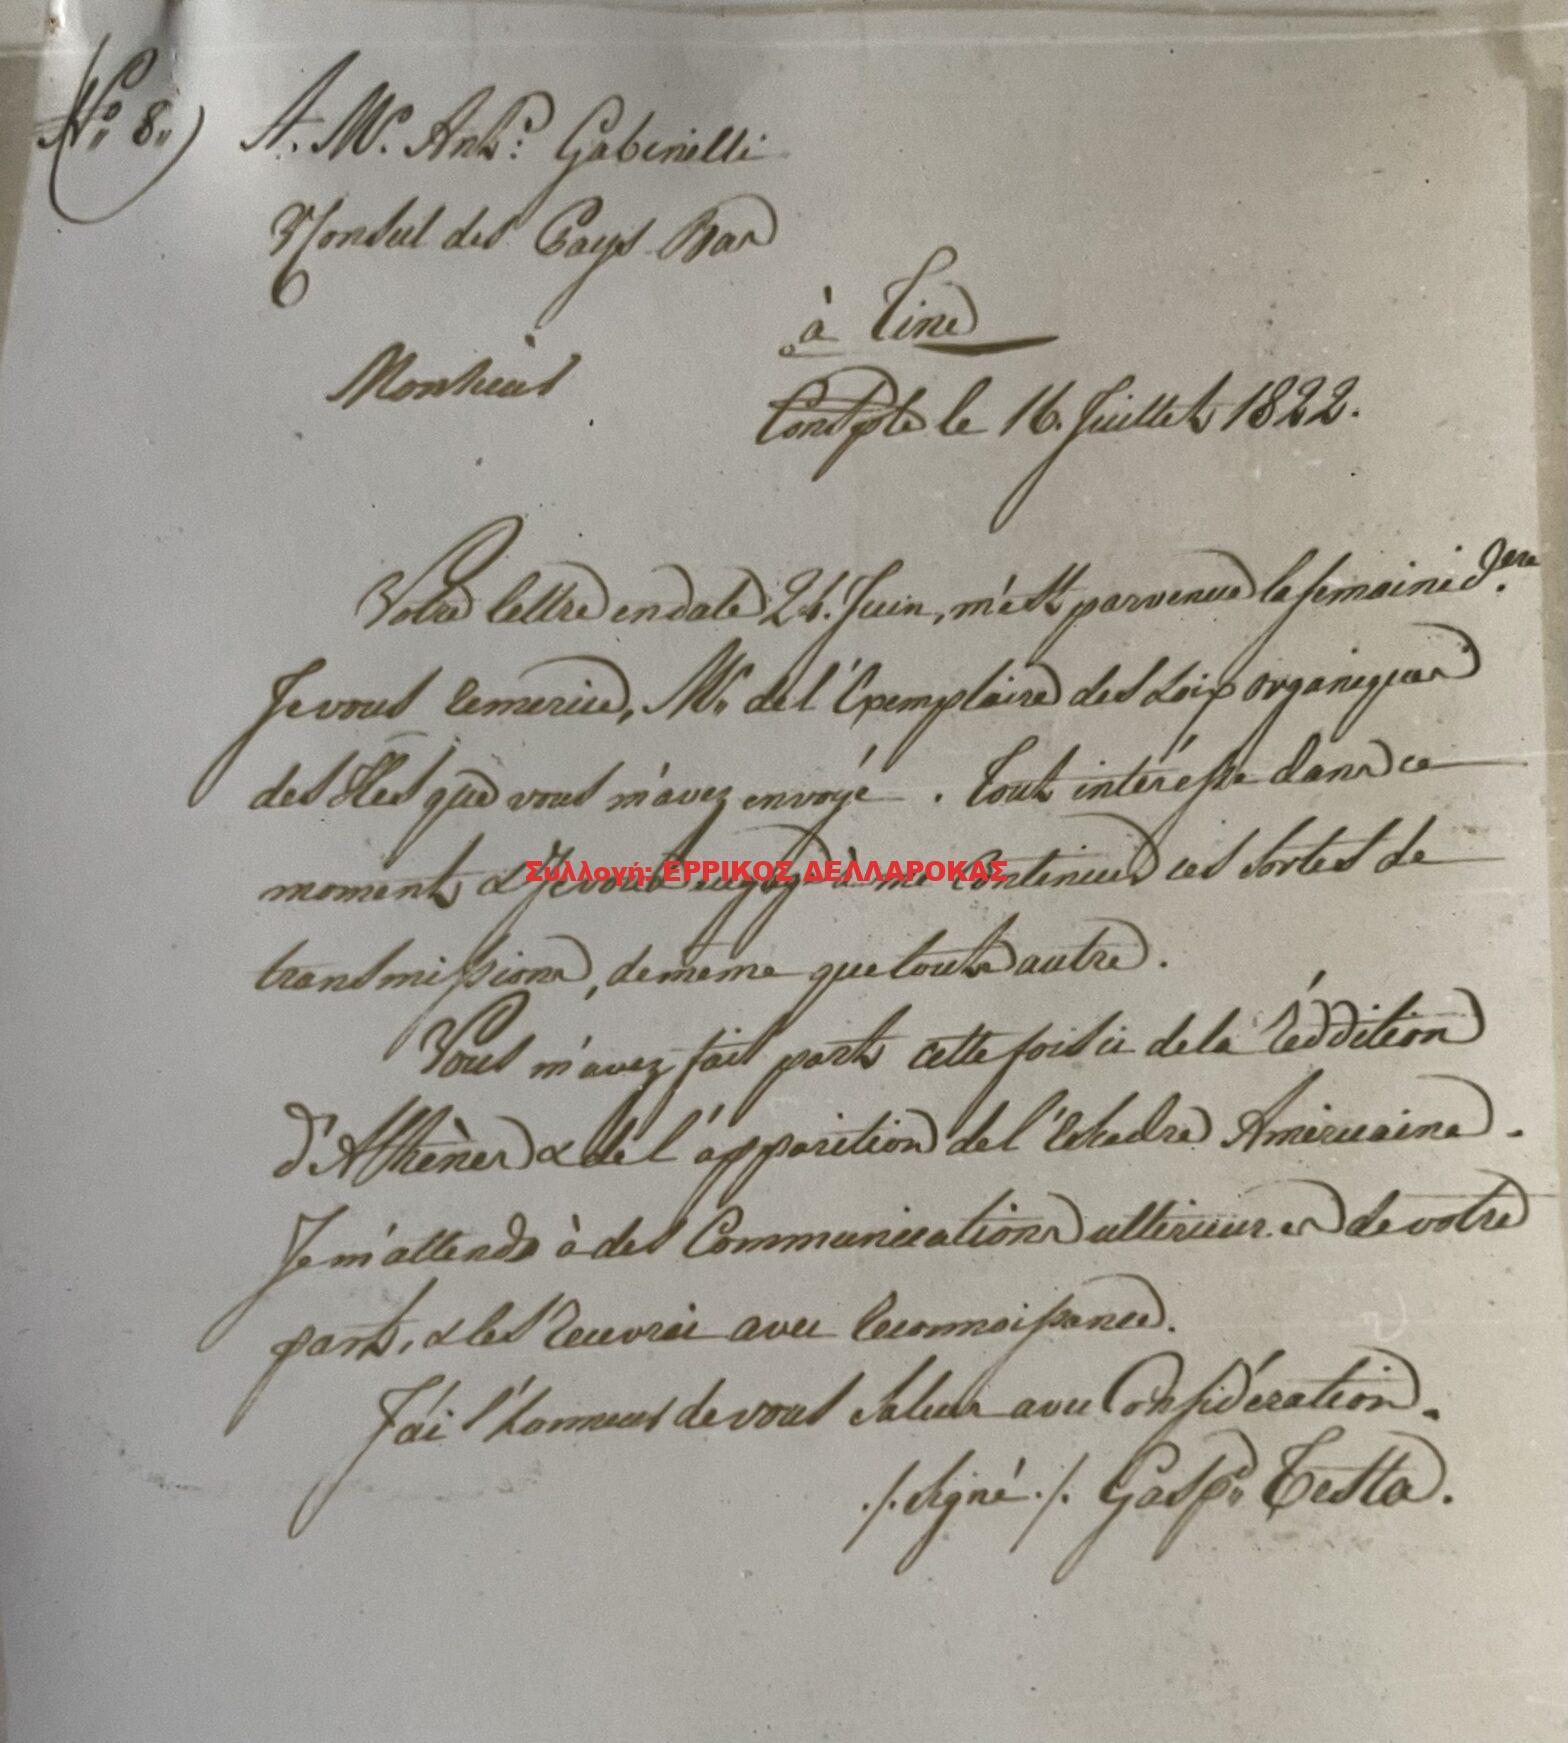 (N.° 8.)
A. Mr. Ant.° Gabinelli
Consul des Pays Bas
à Tine
Monsieur
Constple le 16. Juillet 1822.
Votre lettre en date 24. Juin, m'est parvenue la semaine dere.
Je vous remercie, Mr. de l'Exemplaire des Loix organiques
des Iles que vous m'avez envoyé. Tout intéresse dans ce
moment & Je vous engage à me continuer ces sortes de
Συλλογή: ΕΡΡΙΚΟΣ ΔΕΛΛΑΡΟΚΑΣ
transmissions, de meme que toute autre.
Vous m'avez fait part cette fois ci de la réddition
d'Athènes & de l'apparition de l'Eskadre Américaine.
Je m'attends à des Communications ultérieures de votre
part, & les recevrai avec reconnoissance.
J'ai l'honneur de vous saluer avec Considération.
./. signé ./. Gasp. Testa.